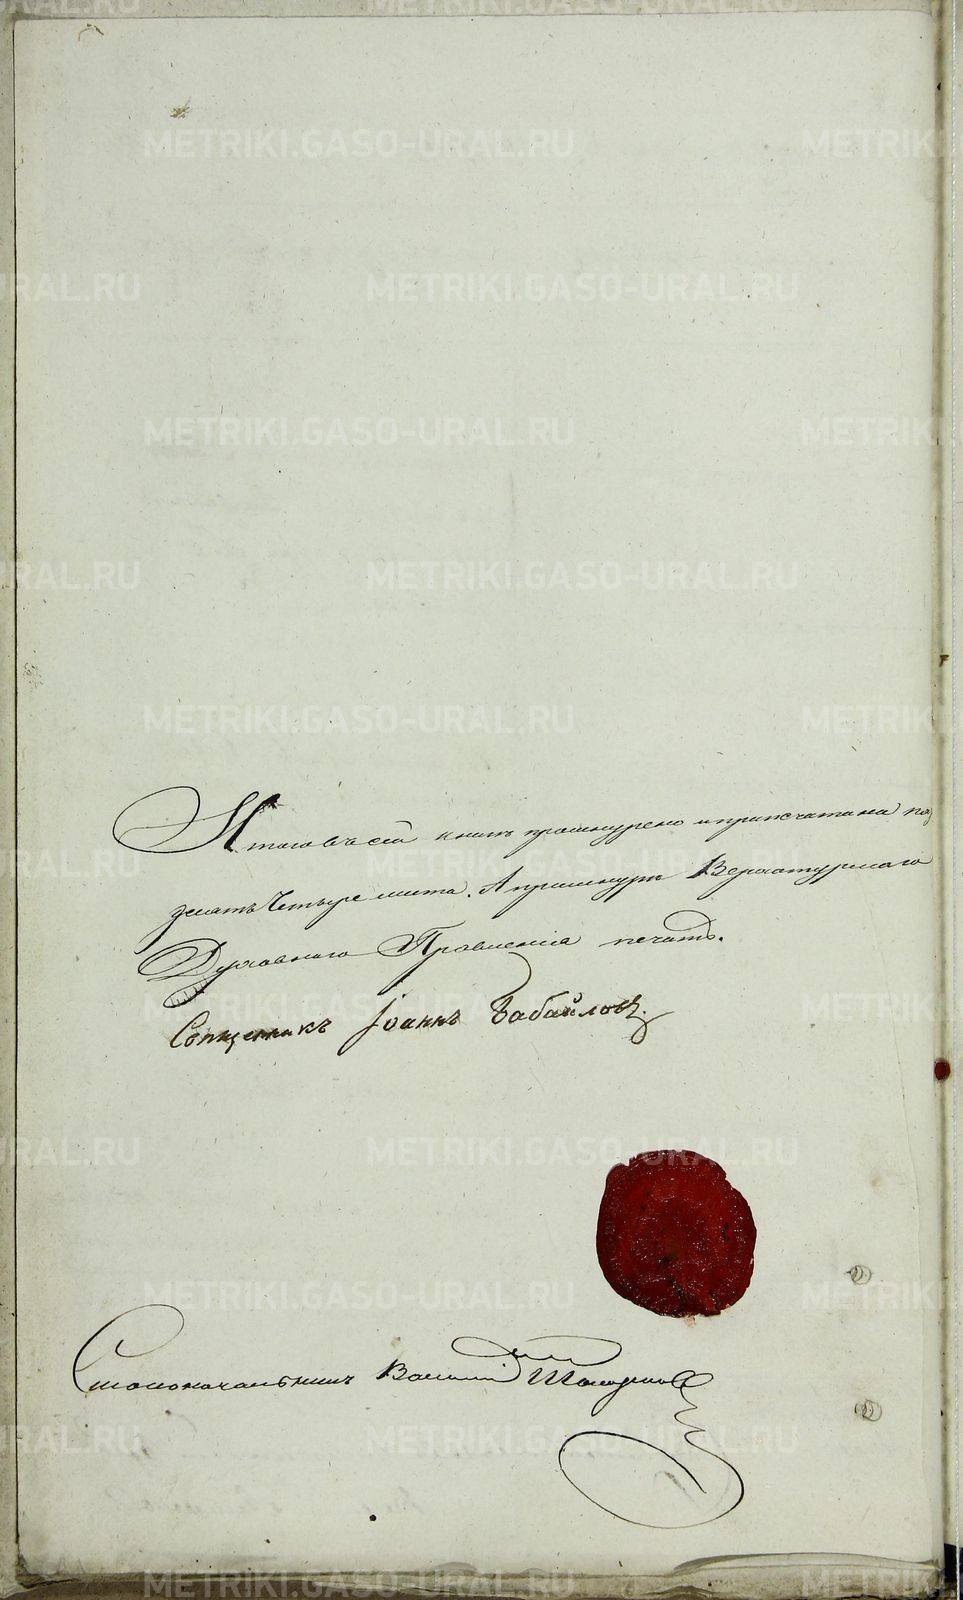 METRIKI.GASO-URAL.RU
Итого въ сей книгѣ прошнурено и припечатано
Четыре листа. А при шнурѣ Верхотурскаго
Духовнаго Правленія печать.
Священникъ Іоаннъ Бабайловъ.
Столоначальникъ Василій